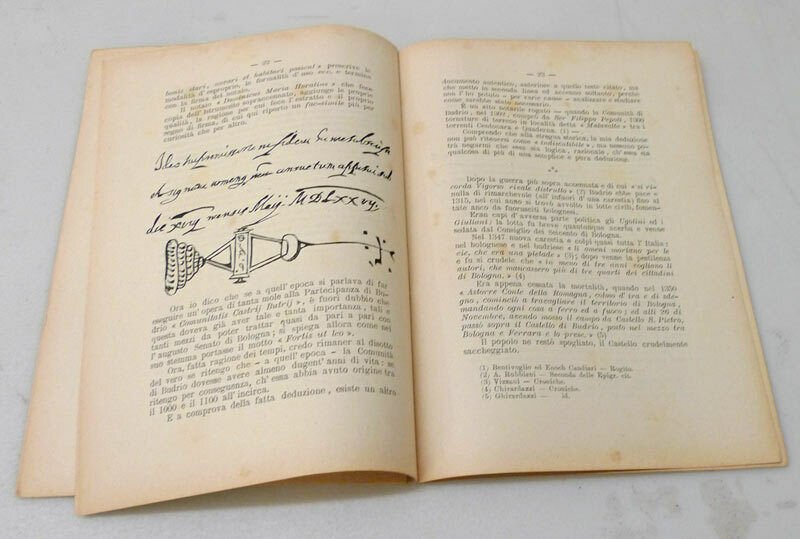 — 22 —
fossi dari, vocari et haberi possent » prescrive le
modalità d'esproprio, le formalità d'uso ecc. e termina
con la firma del notaio.
Il notaio « Dominicus Maria Horatius » che fece
copia dell'Istrumento sopraccennato, aggiunge le proprie
qualità, la ragione per cui fece l'estratto e il proprio
segno di firma, di cui qui riporto un fac-simile più per
curiosità che per altro.
die xxvij mensis Maij. MDLXXVIJ.
Ora io dico che se a quell'epoca si parlava di far
eseguire un'opera di tanta mole alla Partecipanza di Bu-
drio « Comunitatis Castrij Butrij », è fuori dubbio che
questa doveva già aver tale e tanta importanza, tali e
tanti mezzi da poter trattar quasi da pari a pari con
l'augusto Senato di Bologna; si spiega allora come nel
suo stemma portasse il motto « Fortis ut leo ».
Ora, fatta ragione dei tempi, credo rimaner al disotto
del vero se ritengo che - a quell'epoca - la Comunità
di Budrio dovesse avere almeno dugent'anni di vita; se
ritengo per conseguenza, ch'essa abbia avuto origine tra
il 1000 e il 1100 all'incirca.
E a comprova della fatta deduzione, esiste un altro
— 23 —
documento autentico, anteriore a quello testè citato, ma
che metto in seconda linea ed accenno soltanto, perchè
non l'ho potuto - per varie cause - analizzare e studiare
come sarebbe stato necessario.
È un atto notarile rogato - quando la Comunità di
Budrio, nel 1202, comprò da Ser Filippo Pepoli, 1000
tornature di terreno in località detta « Malavolta » tra i
torrenti Centonara e Quaderna. (1) —.
Comprendo che alla stregua storica, la mia deduzione
non può ritenersi come « indiscutibile », ma nessuno potrà
negarmi che non sia logica, razionale, ch'essa sia
qualcosa di più di una semplice e pura deduzione.
Dopo la guerra più sopra accennata e di cui « si ri-
corda Vigorso rivale distrutto » (2) Budrio ebbe pace -
nulla di rimarchevole (all'infuori d'una carestia) fino al
1315, nel cui anno si trovò avvolto in lotte civili, fomen-
tate anco da fuorusciti bolognesi.
Eran capi d'avversa parte politica gli Ugolini ed i
Giuliani; la lotta fu breve quantunque acerba e venne
sedata dal Consiglio dei Seicento di Bologna.
Nel 1347 nuova carestia a colpì quasi tutt'l'Italia:
nel bolognese e nel budriese « li omeni morivano per le
vie, che era una pietade » (3); dopo venne la pestilenza
e fu sì crudele che « in meno di tre anni vogliono li
autori, che mancassero più di tre quarti dei cittadini
di Bologna. » (4)
Era appena cessata la mortalità, quando nel 1350
« Astorre Conte della Romagna, colmo d'ira e di sde-
gno, cominciò a travagliare il territorio di Bologna,
mandando ogni cosa a ferro ed a fuoco; ed alli 26 di
Novembre, ancora in campo da Castello S. Pietro,
passò sopra il Castello di Budrio, posto nel mezzo tra
Bologna e Ferrara e lo prese. » (5)
Il popolo ne restò spogliato, il Castello crudelmente
saccheggiato.
(1) Bentivoglio ed Enoch Candiari — Rogito.
(2) A. Rubbiani — Seconda delle Epigr. cit.
(3) Vizzani — Croniche.
(4) Ghirardazzi — Croniche.
(5) Ghirardazzi — id.